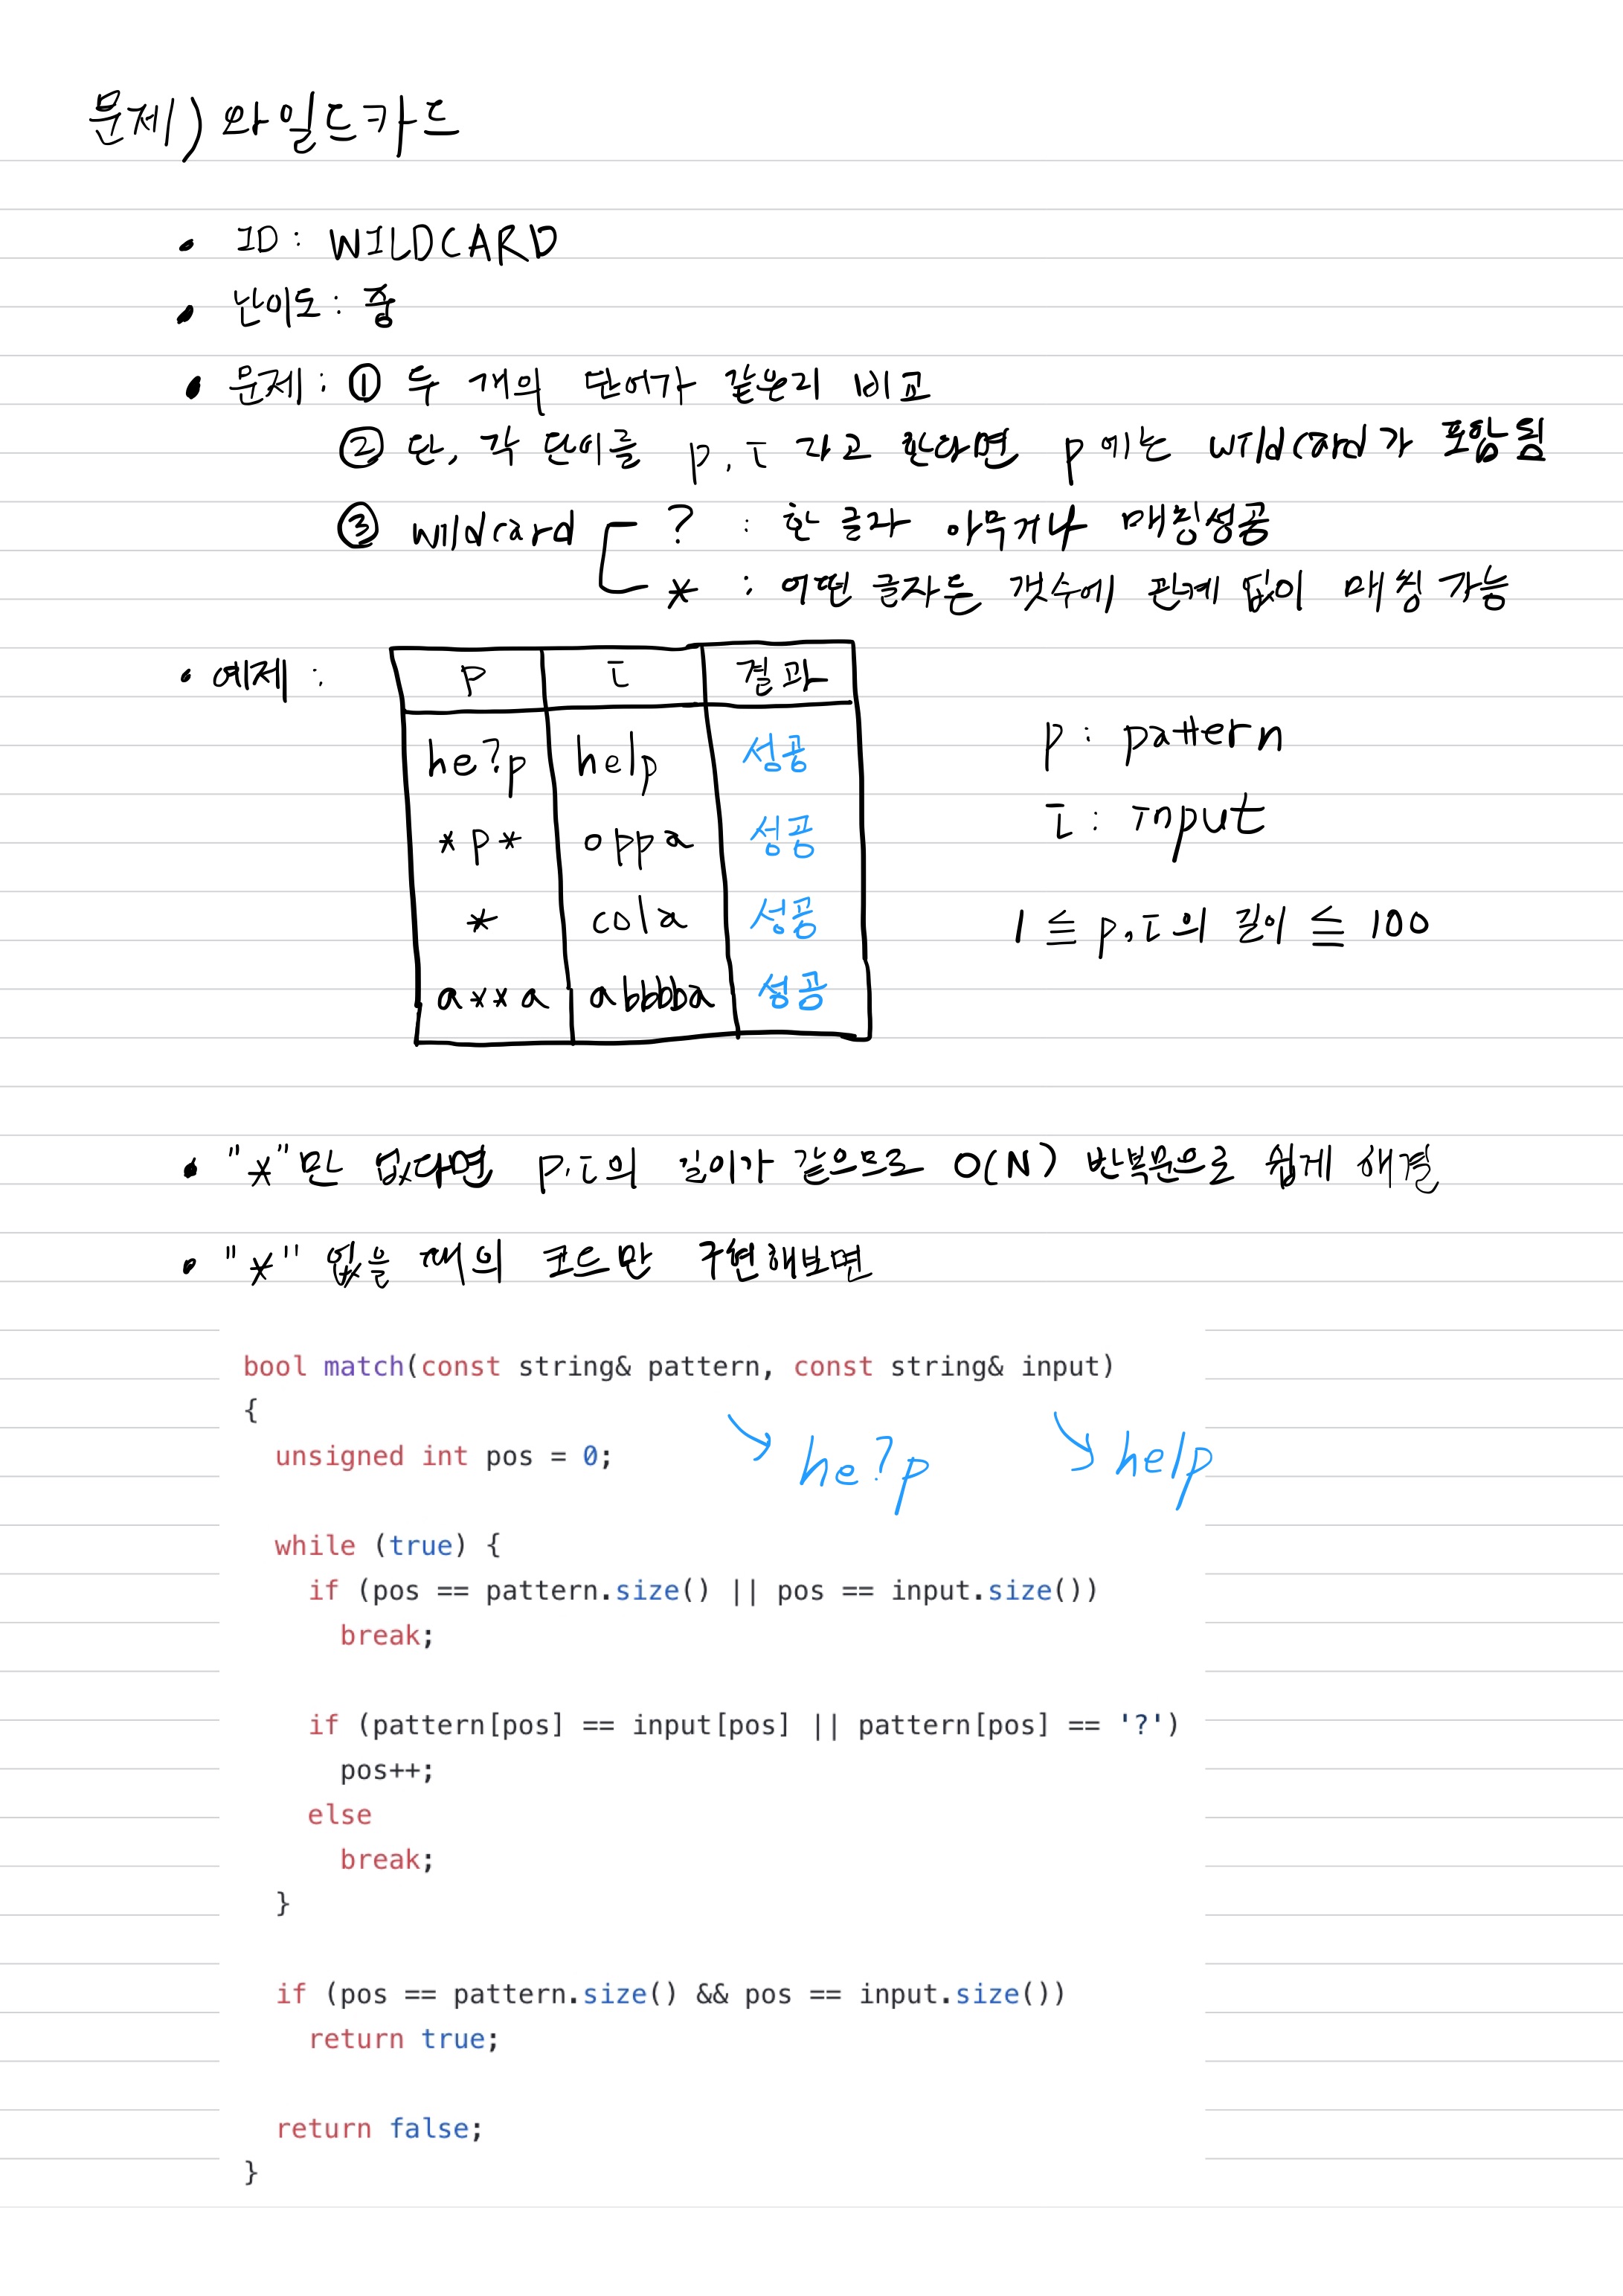 문제) 와일드카드
• ID : WILDCARD
• 난이도 : 중
• 문제 : ① 두 개의 단어가 같은지 비교
② 단, 각 단어를 p, i 라고 한다면 p에는 wildcard가 포함됨
③ wildcard ? : 한 글자 아무거나 매칭성공
* : 어떤 글자든 갯수에 관계 없이 매칭 가능
• 예제 :
p i 결과
he?p help 성공
*p* oppa 성공
* cola 성공
a**a abbbba 성공
p : pattern
i : input
1 ≦ p, i의 길이 ≦ 100
• "*"만 없다면 p, i의 길이가 같으므로 O(N) 반복문으로 쉽게 해결
• "*" 없을 때의 코드만 구현해보면
bool match(const string& pattern, const string& input)
{
he?p help
unsigned int pos = 0;
while (true) {
if (pos == pattern.size() || pos == input.size())
break;
if (pattern[pos] == input[pos] || pattern[pos] == '?')
pos++;
else
break;
}
if (pos == pattern.size() && pos == input.size())
return true;
return false;
}